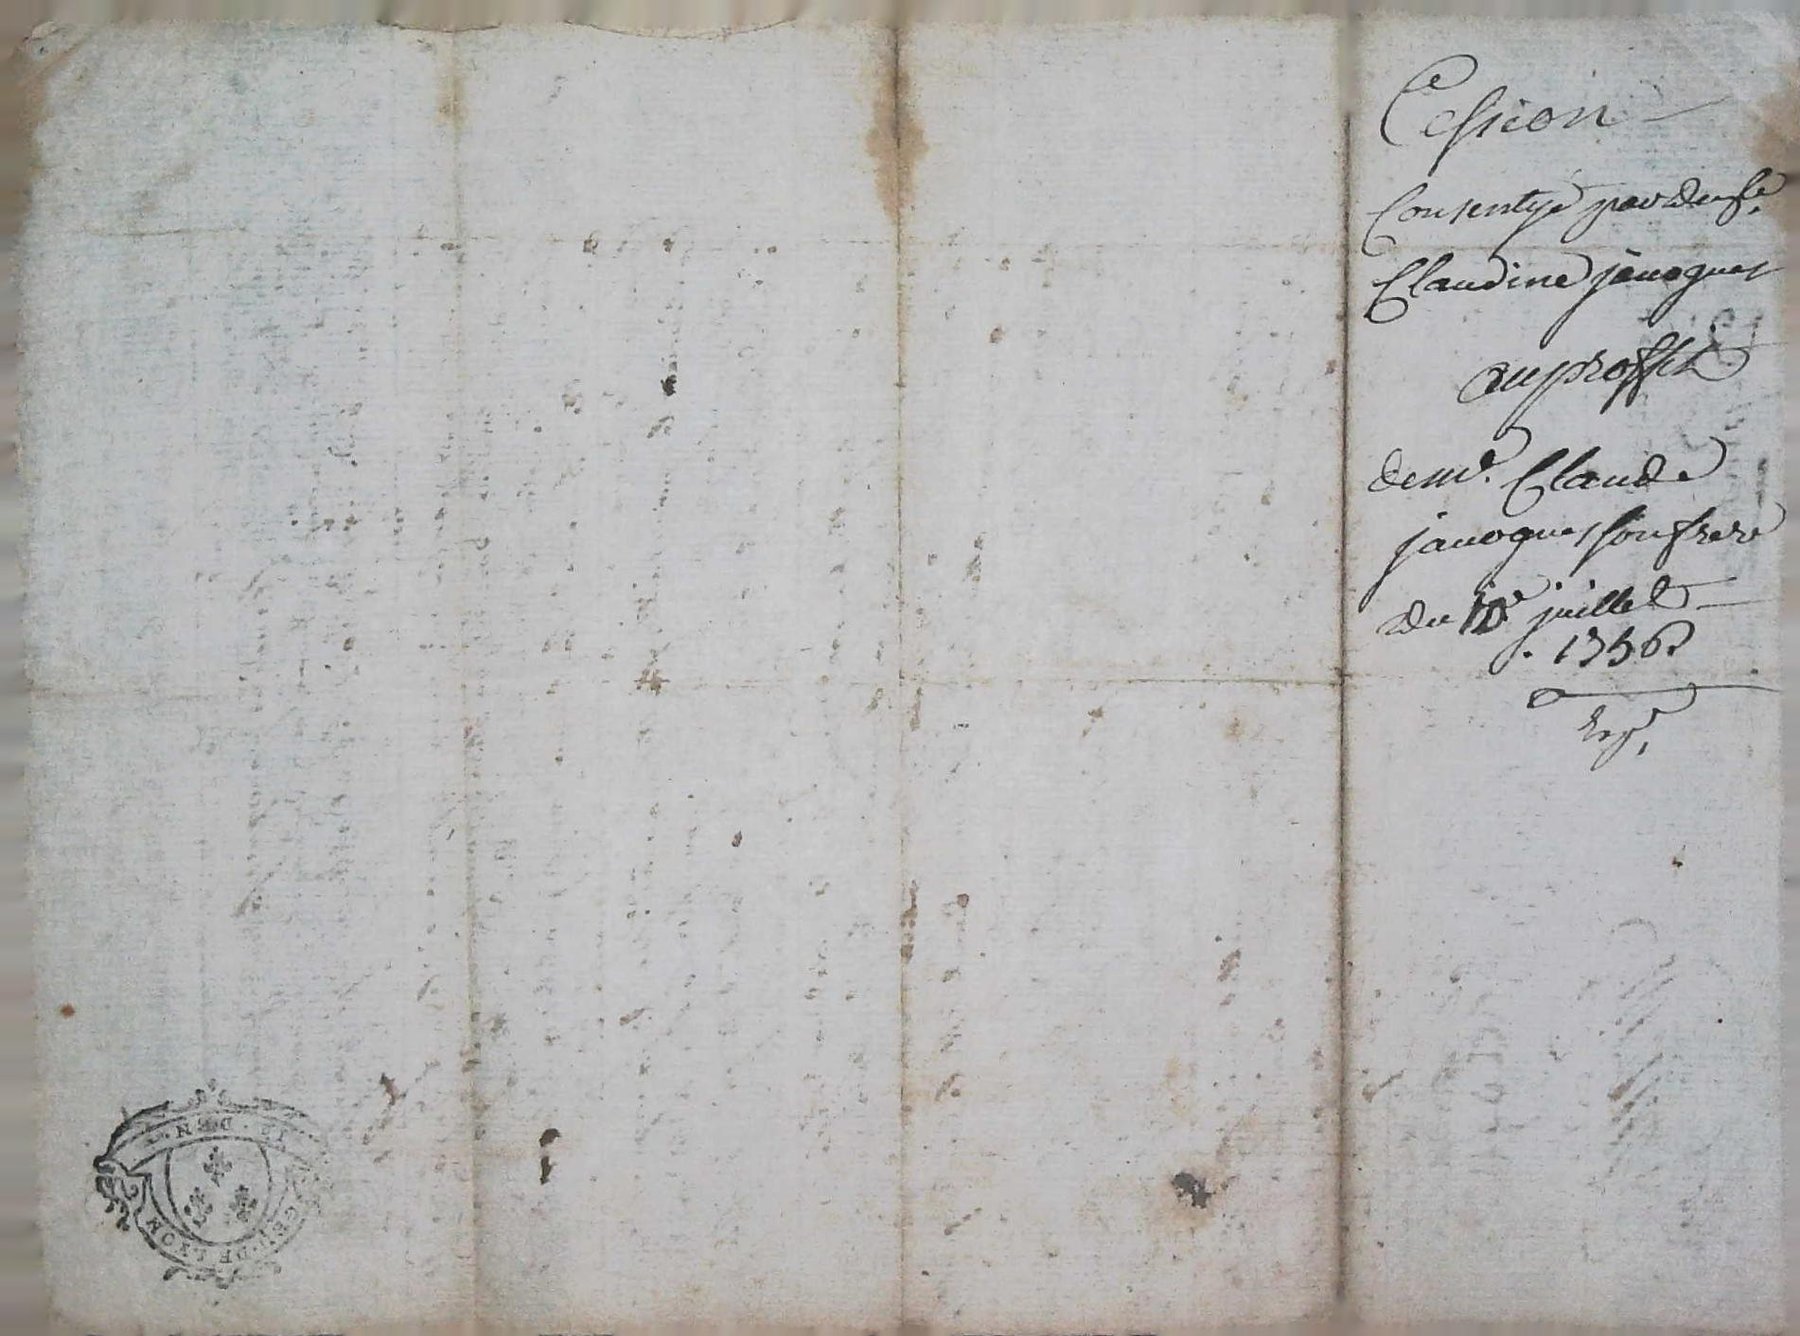 Cession
Consentye par demlle
Claudine jauoques
au proffit
de mr. Claude
jauoques son frere
du 10e juillet
. 1756.
GEN. DE LYON